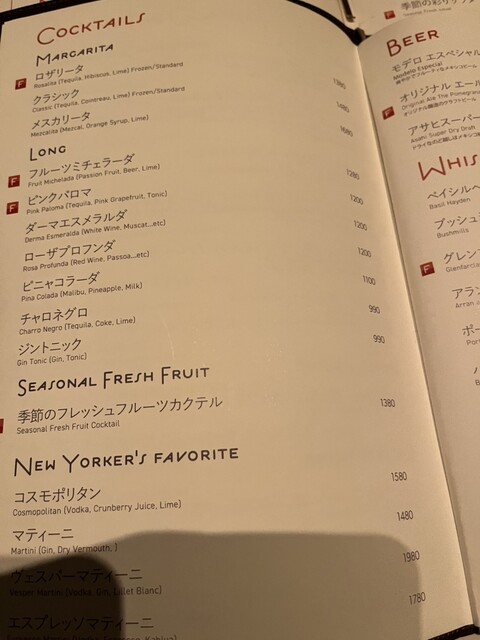 COCKTAILS
MARGARITA
F ロザリータ
Rosarita (Tequila, Hibiscus, Lime) Frozen/Standard
1380
クラシック
Classic (Tequila, Cointreau, Lime) Frozen/Standard
1480
メスカリータ
Mezcalite (Mezcal, Orange Syrup, Lime)
1680
LONG
F フルーツミチェラーダ
Fruit Michelada (Passion Fruit, Beer, Lime)
1280
F ピンクパロマ
Pink Paloma (Tequila, Pink Grapefruit, Tonic)
1200
ダーマエスメラルダ
Derma Esmeralda (White Wine, Muscat...etc)
1200
ローザプロフンダ
Rosa Profunda (Red Wine, Passoa...etc)
1200
ピニャコラーダ
Pina Colada (Malibu, Pineapple, Milk)
1100
チャロネグロ
Charro Negro (Tequila, Coke, Lime)
990
ジントニック
Gin Tonic (Gin, Tonic)
990
SEASONAL FRESH FRUIT
季節のフレッシュフルーツカクテル
Seasonal Fresh Fruit Cocktail
1380
NEW YORKER'S FAVORITE
コスモポリタン
Cosmopolitan (Vodka, Crunberry Juice, Lime)
1580
マティーニ
Martini (Gin, Dry Vermouth, )
1480
ヴェスパーマティーニ
Vesper Martini (Vodka, Gin, Lillet Blanc)
1980
エスプレッソマティーニ
1780
季節の彩り
BEER
モデロ エスペシャル
Modelo Especial
F オリジナル エール
Original Ale The Pomegrana
オリジナルのクラフトビール
アサヒスーパー
Asahi Super Dry Draft
WHIS
ベイシルヘ
Basil Hayden
ブッシュ
Bushmills
F グレン
Glenfarclas
アラン
Arran
ポー
Por